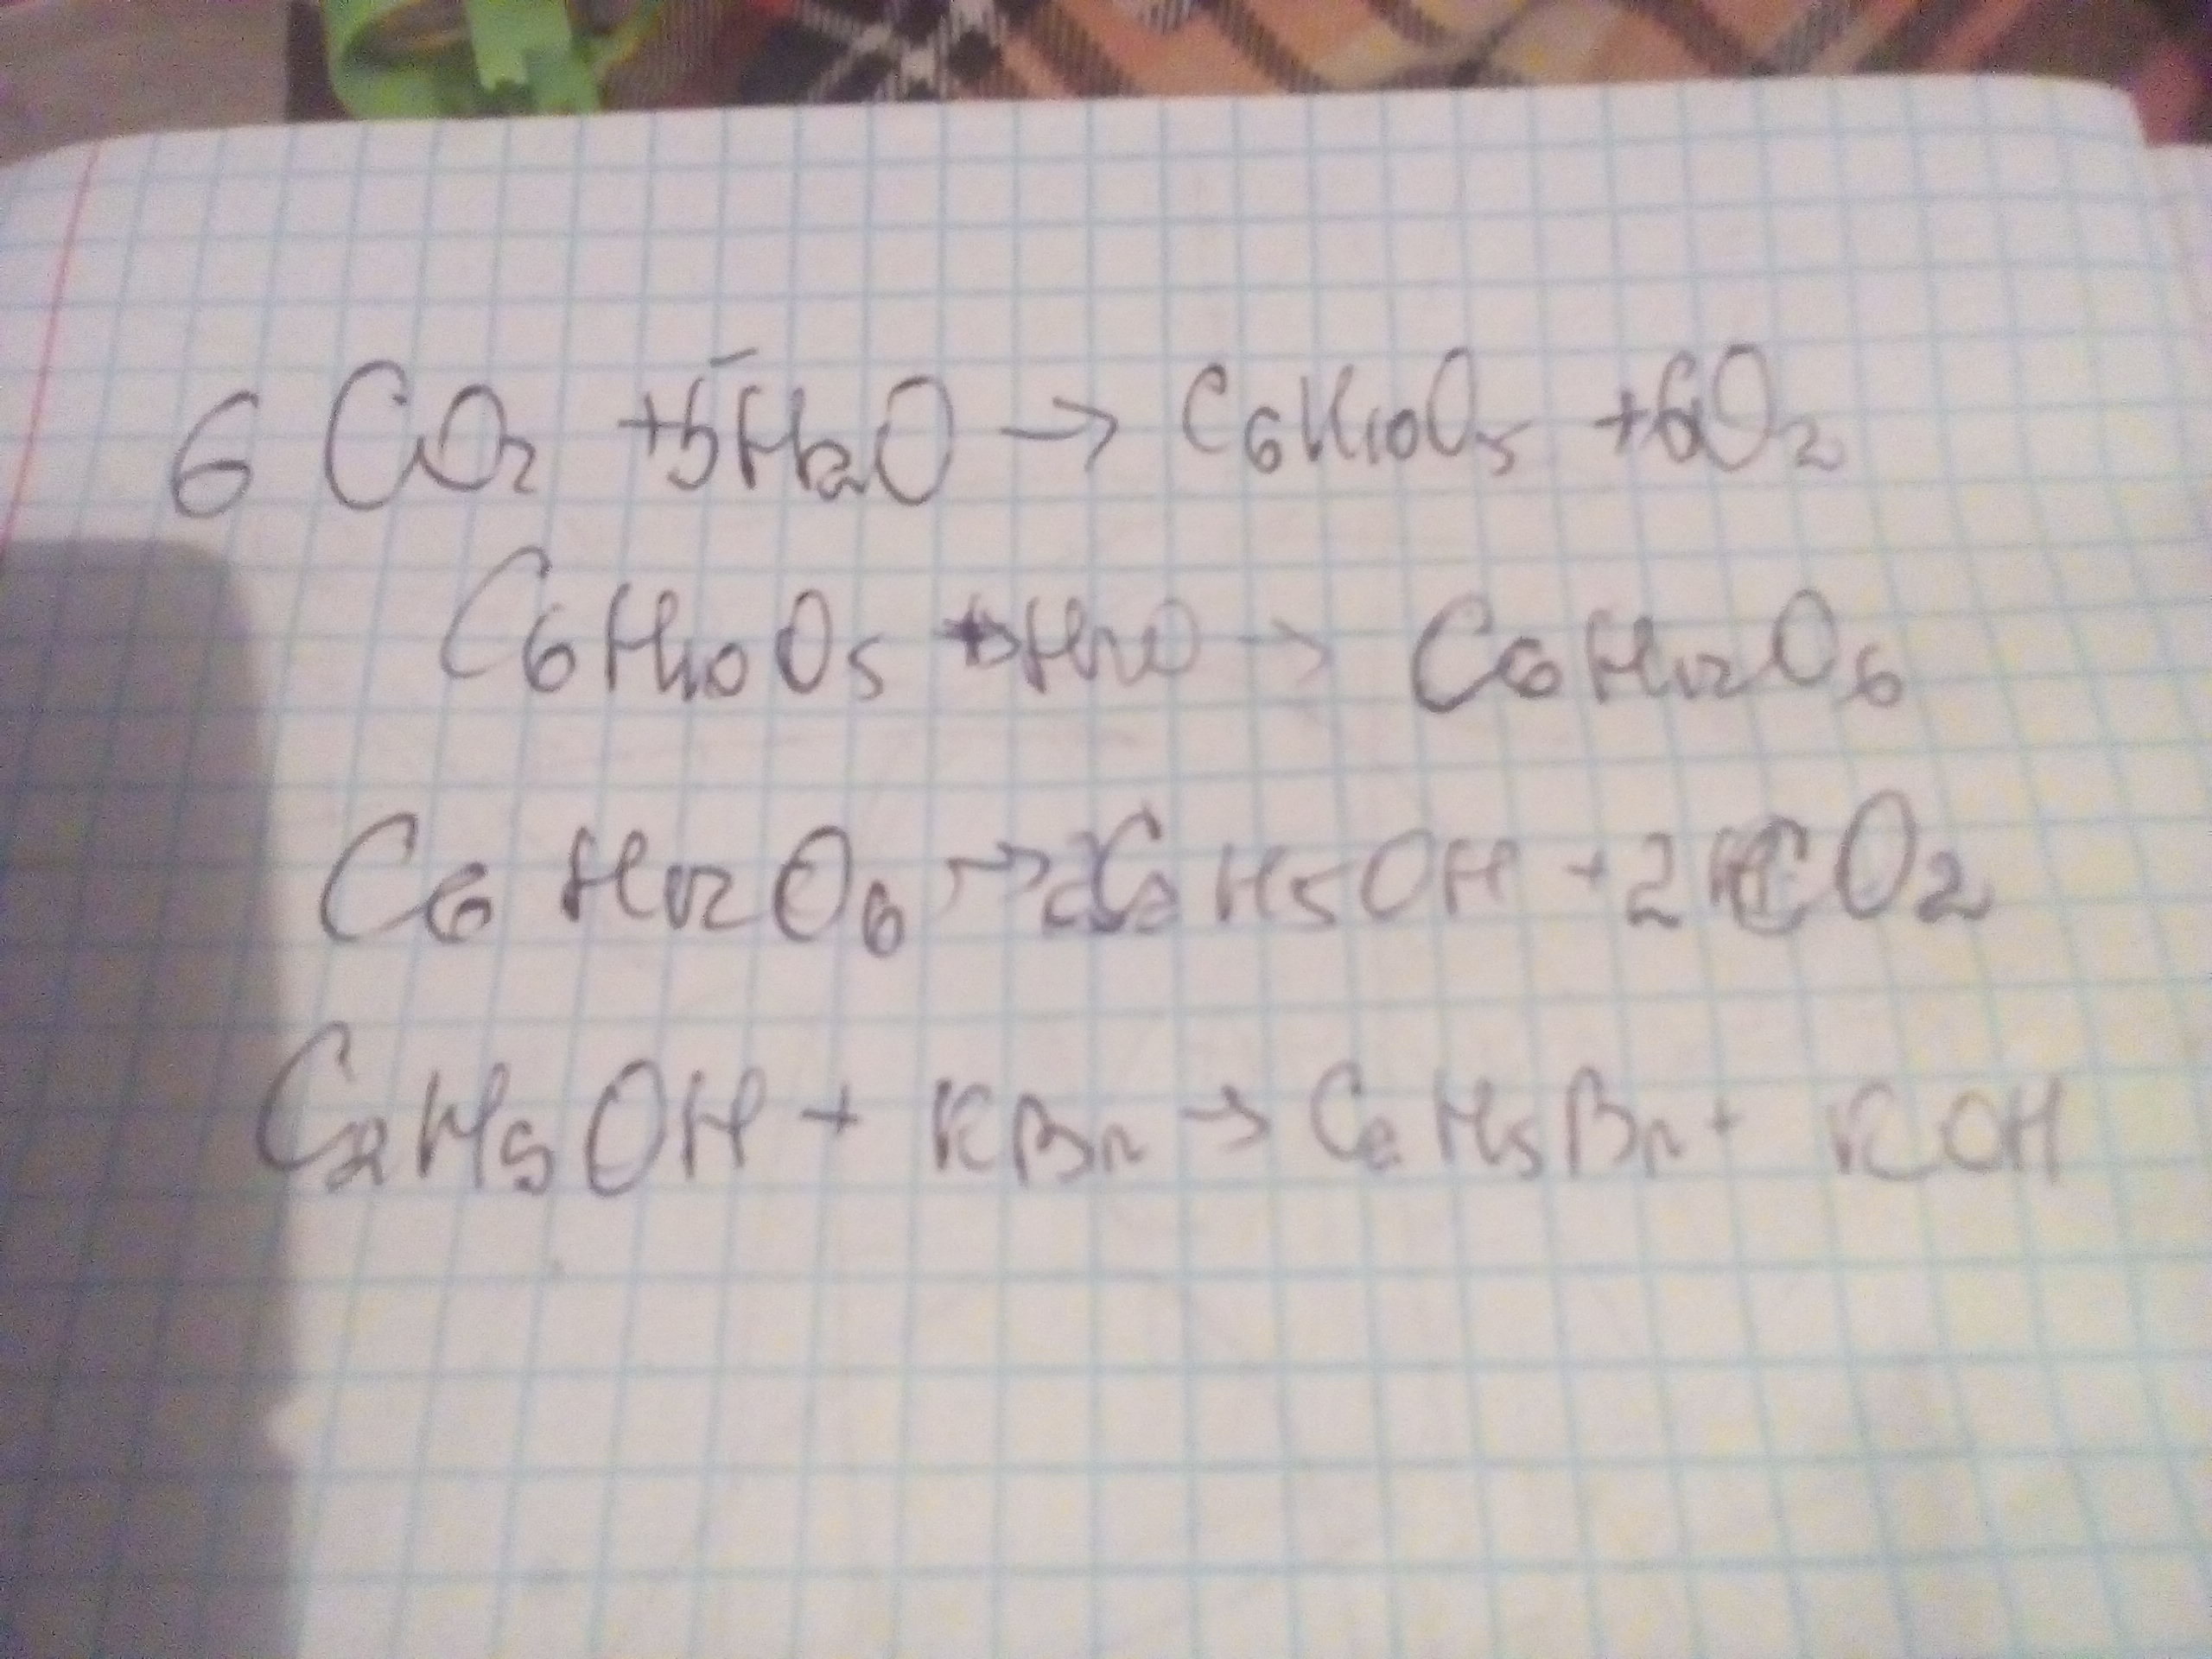 6 CO2 +5H2O → C6H10O5 +6O2
C6H10O5 + H2O → C6H12O6
C6H12O6 → 2C2H5OH + 2CO2
C2H5OH + KBr → C2H5Br + KOH